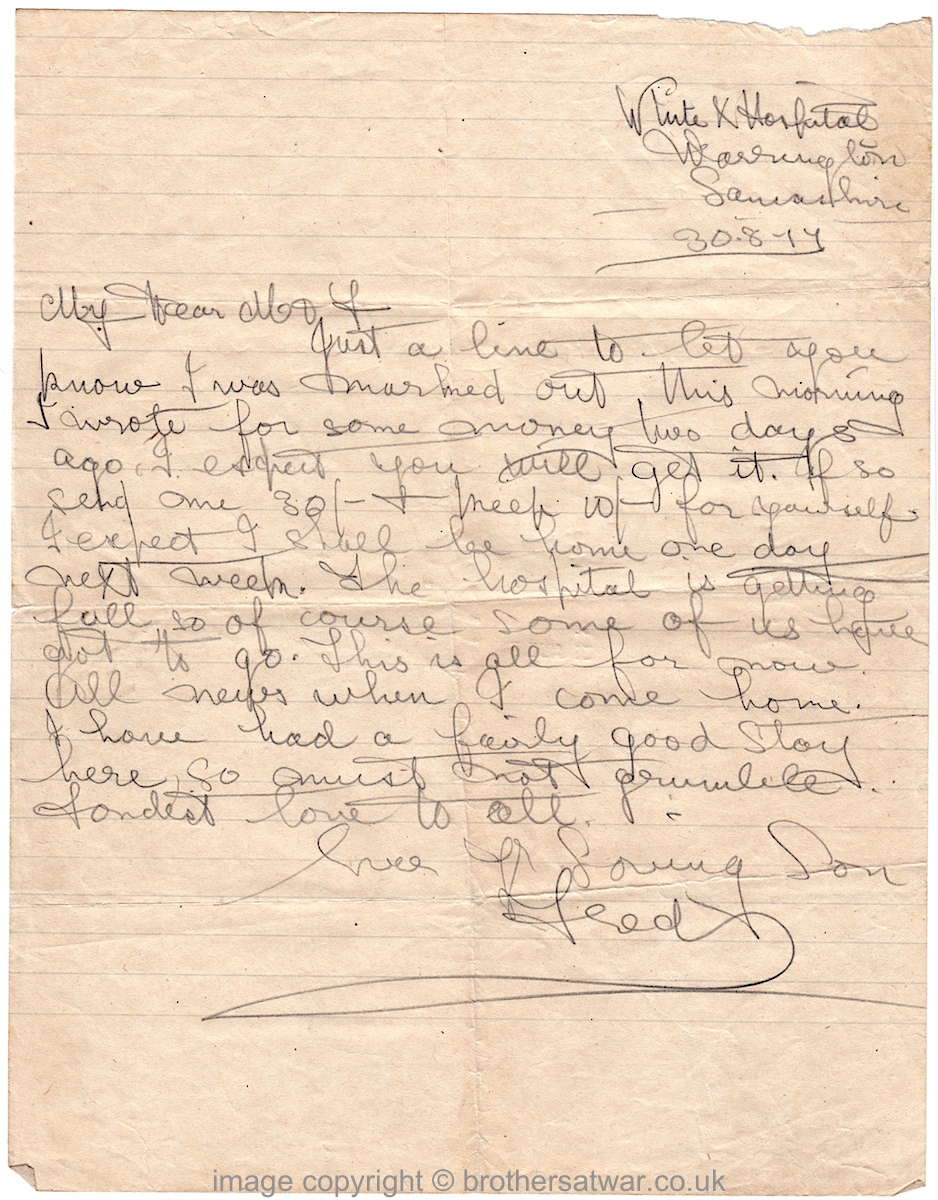 White X Hospital
Warrington
Lancashire
30-8-17
My Dear M & F
Just a line to let you
know I was marked out this morning
I wrote for some money two days
ago. I expect you will get it. If so
send me 30/- & keep 10/- for yourself.
I expect I shall be home one day
next week. The hospital is getting
full so of course some of us have
got to go. This is all for now.
All news when I come home.
I have had a fairly good stay
here, so must not grumble.
Fondest love to all.
Ever Yr Loving Son
Fred
image copyright © brothersatwar.co.uk